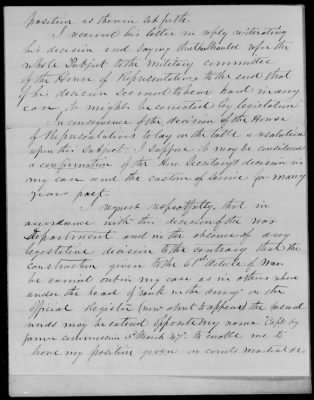 position as therein set forth.
I received his letter in reply reiterating
his decision and saying that he should refer the
whole subject to the military committee
of the House of Representatives to the end that
if his decision seemed to bear hard in many
case, it might be corrected by legislation.
In consequence of the decision of the House
of Representatives to lay on the table a resolution
upon this subject. I suppose it may be considered
a confirmation of the Hon. Secretary's decision in
my case and the custom of service for many
years past.
I request respectfully, that in
accordance with this decision of the War
Department and in the absence of any
legislative decision to the contrary that the
construction given to the 61st Article of War
be carried out in my case as in others where
under the head of "rank in the army" in the
Official Register (now about to appear) the usual
words may be entered opposite my name "Capt. by
former commission 3d March 47." to enable me to
have my position given in courts martial &c.